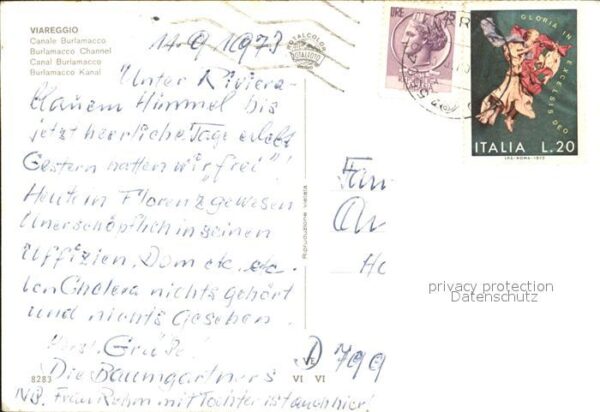 VIAREGGIO
Canale Burlamacco
Burlamacco Channel
Canal Burlamacco
Burlamacco Kanal
14.9.1973
Unter Riviera-
blauem Himmel bis
jetzt herrliche Tage erlebt
Gestern hatten wir „frei"!
Heute in Florenz gewesen
Unerschöpflich in seinen
Uffizien, Dom etc. etc.
Von Cholera nichts gehört
und nichts gesehen.
Herzl. Grüße!
Die Baumgartners
NB. Frau Rehm mit Tochter ist auch hier!
8283
VI VI
Riproduzione vietata
ROTALCOLOR
ROTALFOTO
LIRE 25
GLORIA IN EXCELSIS DEO
ITALIA L.20
I.P.S.-ROMA-1972
Fam
Ho
D 799
privacy protection
Datenschutz